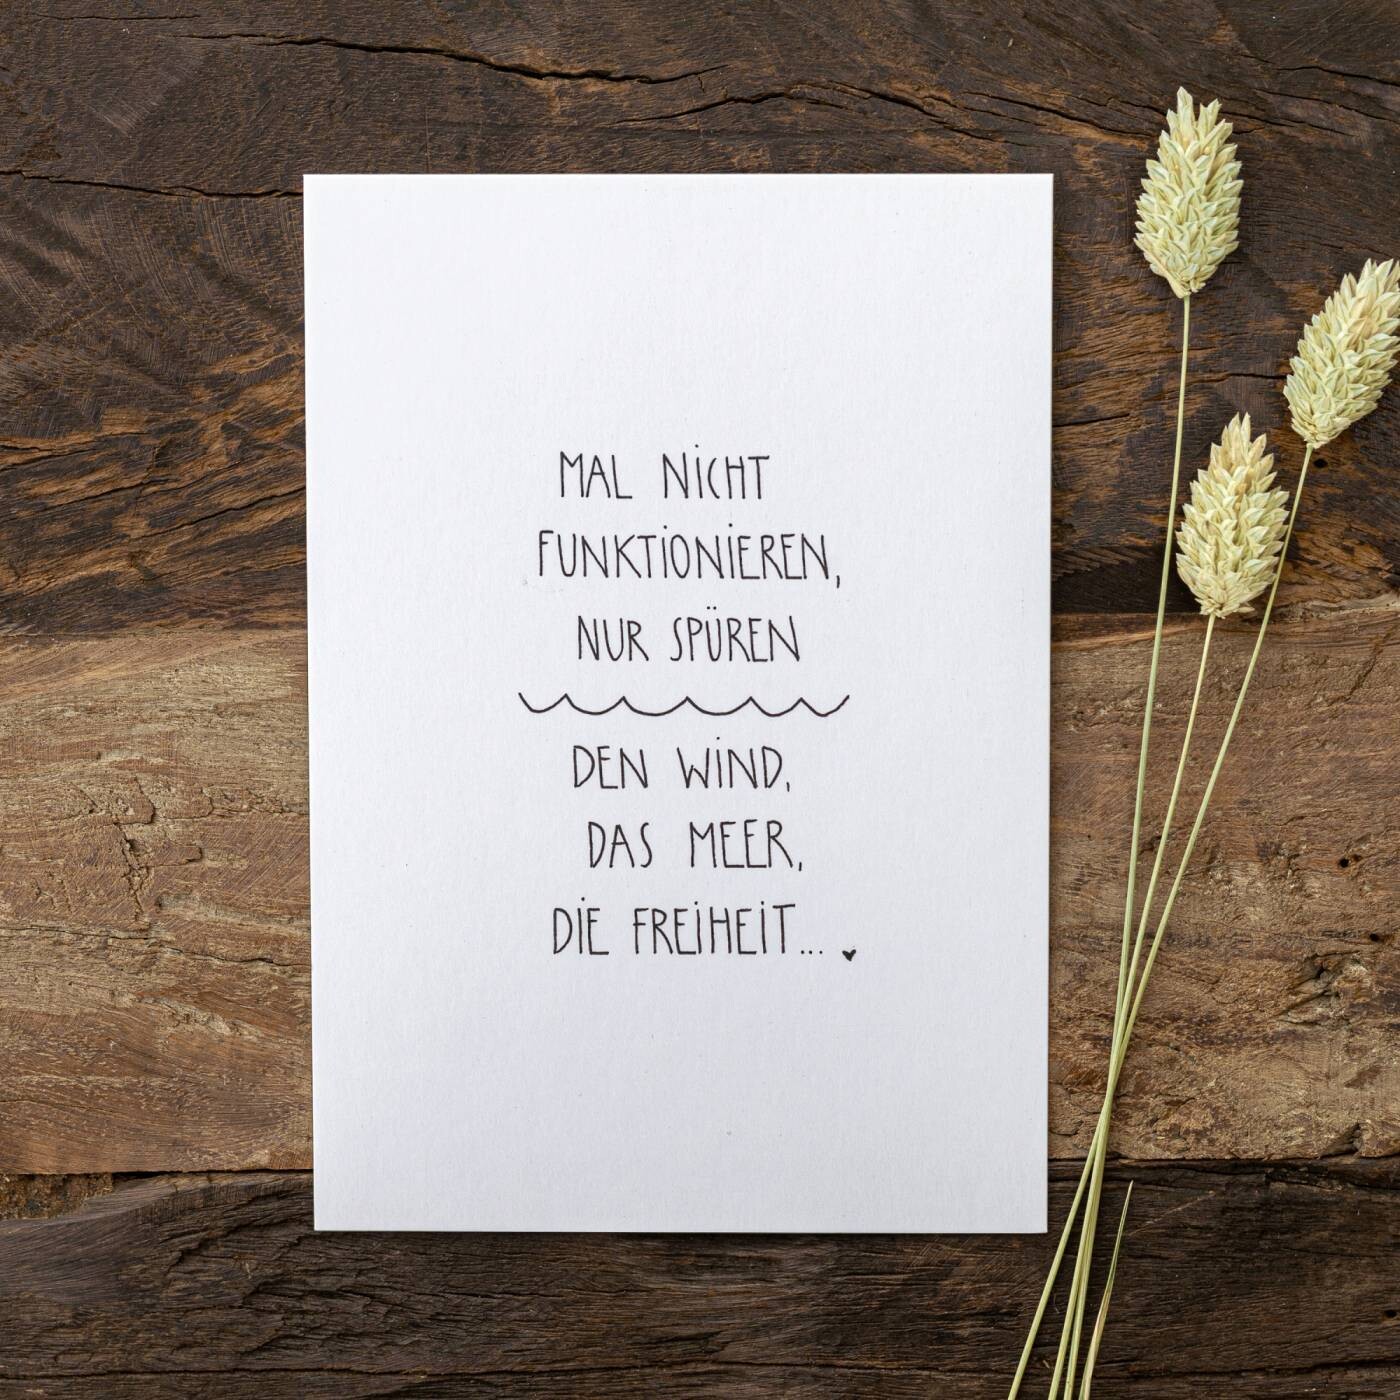 MAL NiCHT
FUNKTiONiEREN,
NUR SPÜREN
DEN WiND,
DAS MEER,
DiE FREiHEiT...